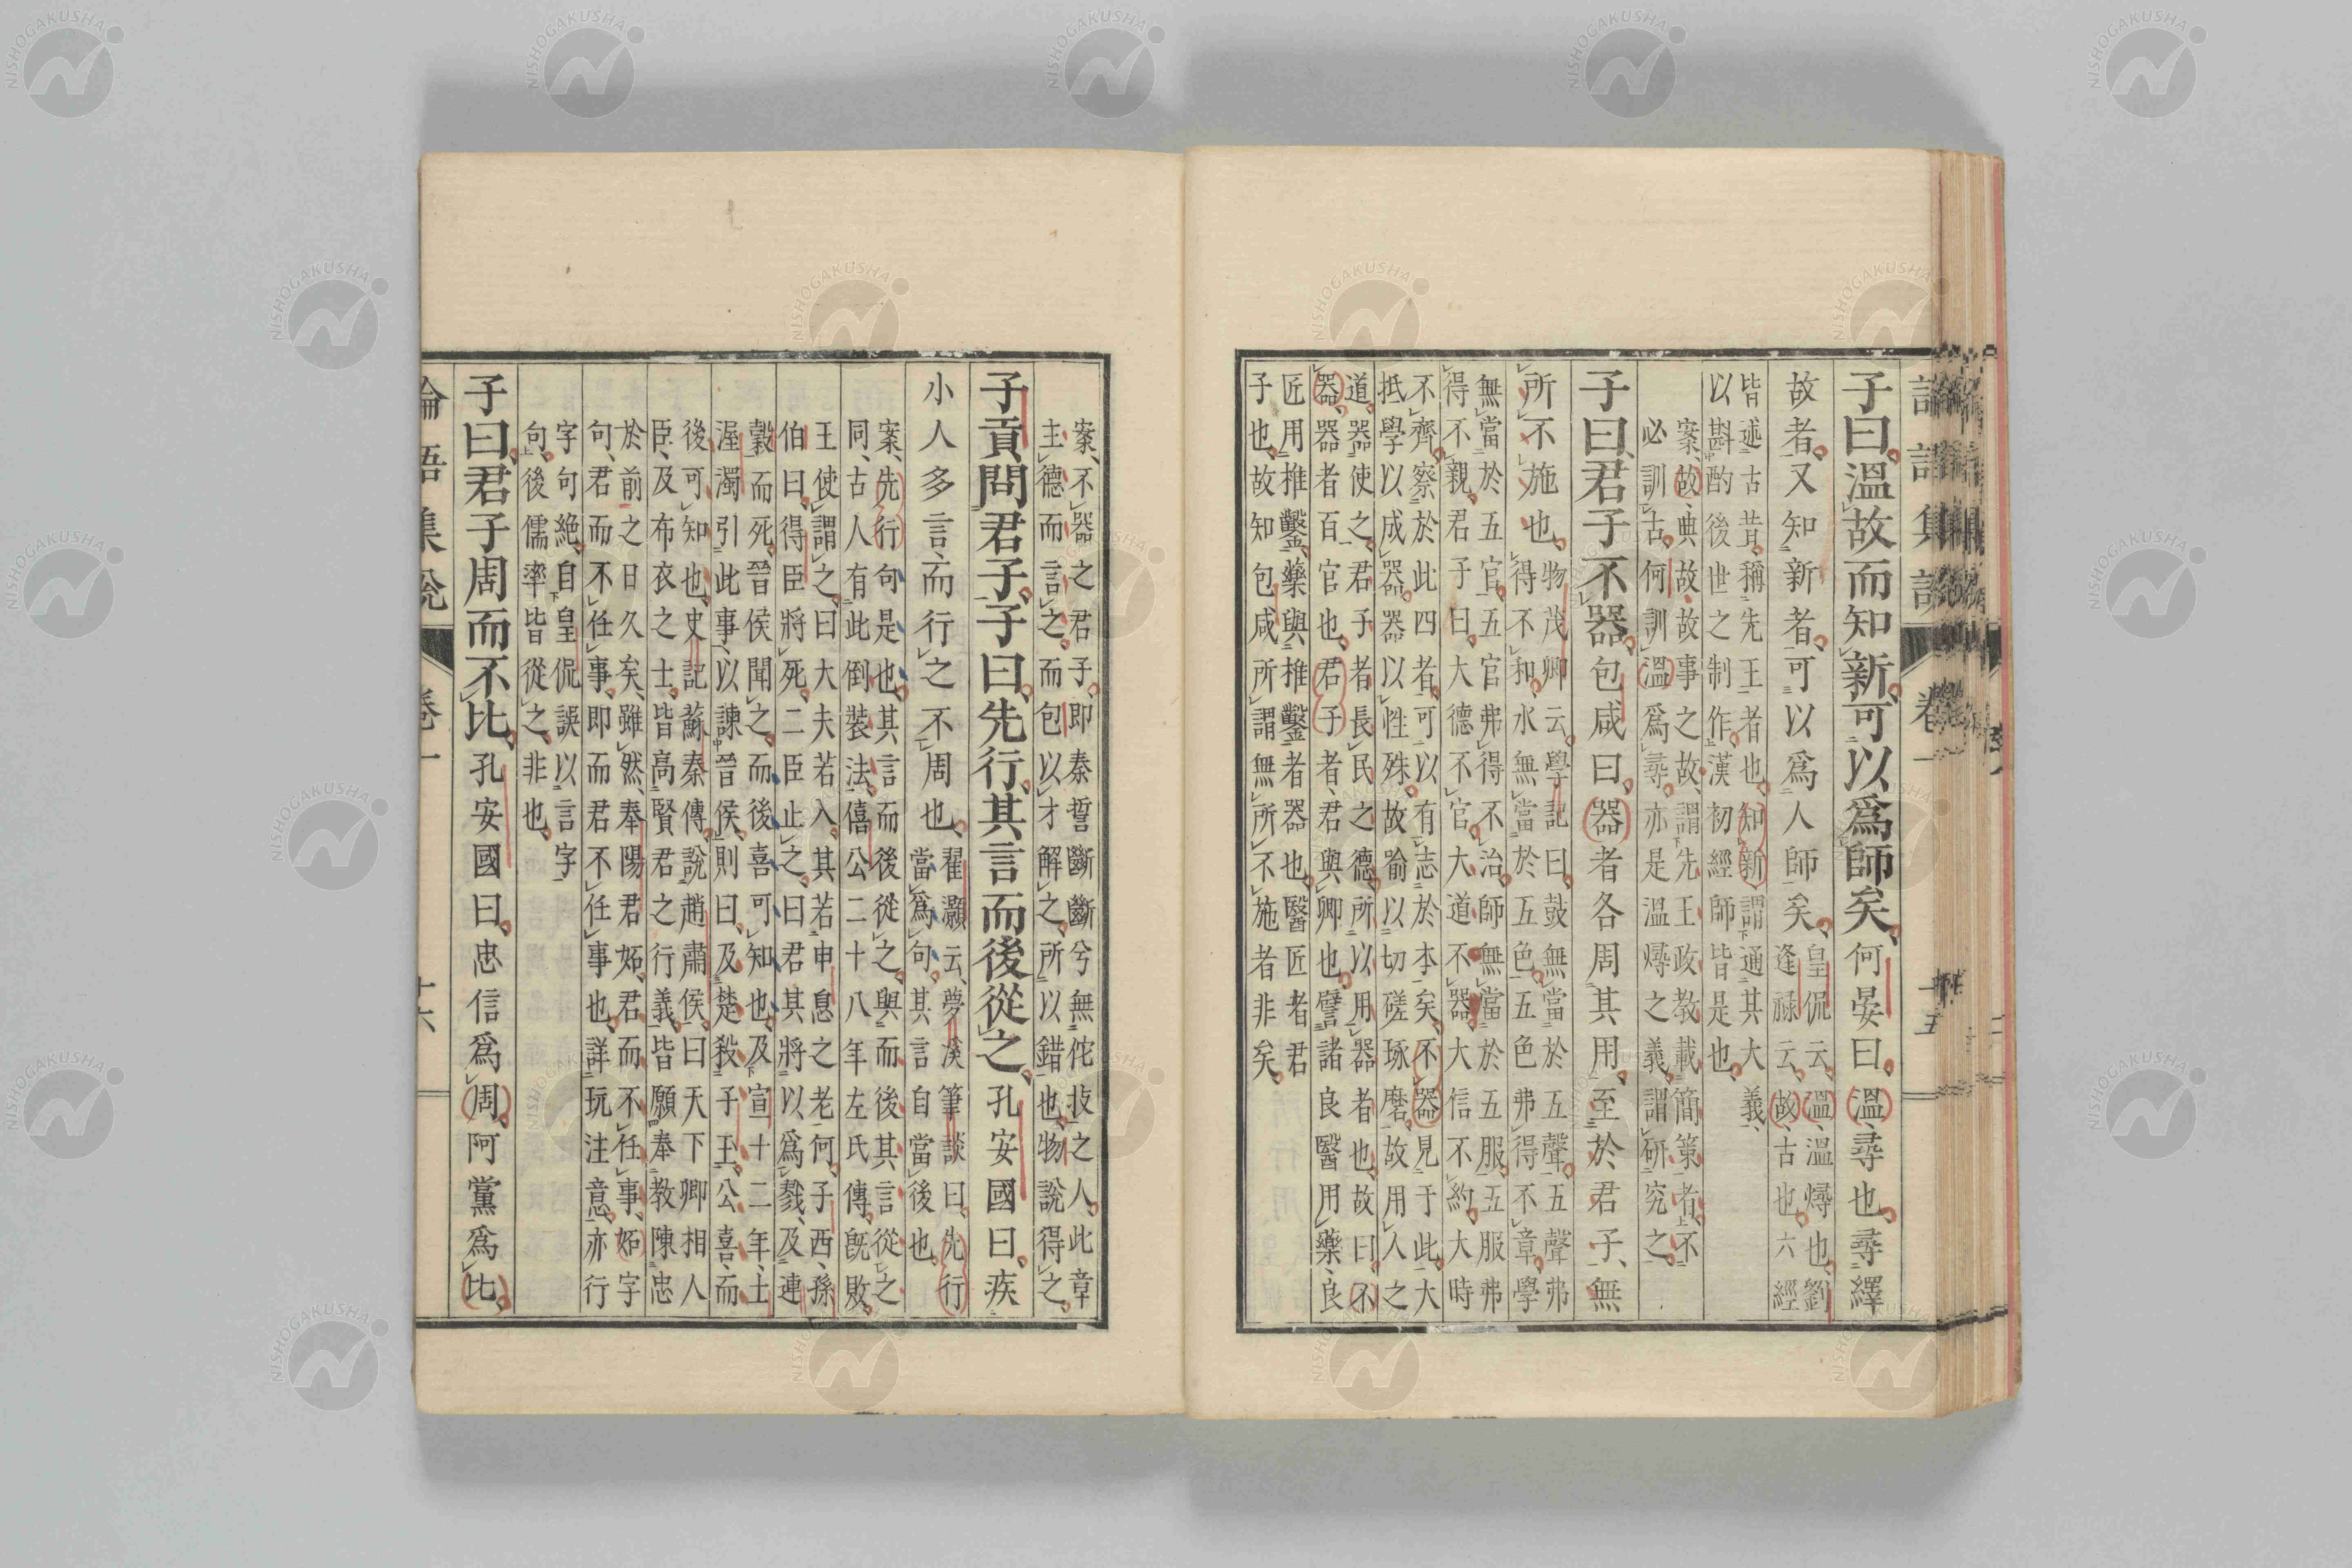 子曰溫故而知新可以爲師矣何晏曰溫尋也尋繹
故者又知新者可以爲人師矣皇侃云溫溫燖也劉
逢祿云故古也六經
皆述古昔稱先王者也知新謂通其大義
以斟酌後世之制作漢初經師皆是也
案故典故故事之故謂先王政教載簡策者不
必訓古何訓溫爲尋亦是溫燖之義謂研究之
子曰君子不器包咸曰器者各周其用至於君子無
所不施也物茂卿云學記曰鼓無當於五聲五聲弗
得不和水無當於五色五色弗得不章學
無當於五官五官弗得不治師無當於五服五服弗
得不親君子曰大德不官大道不器大信不約大時
不齊察於此四者可以有志於本矣不器見于此大
抵學以成器器以性殊故喻以切磋琢磨故用人之
道器使之君子者長民之德所以用器者也故曰不
器器者百官也君子者君與卿也譬諸良醫用藥良
匠用推鑿藥與推鑿者器也醫匠者君
子也故知包咸所謂無所不施者非矣
案不器之君子即秦誓斷斷兮無侘技之人此章
主德而言之而包以才解之所以錯也物說得之
子貢問君子子曰先行其言而後從之孔安國曰疾
小人多言而行之不周也翟灝云夢溪筆談曰先行
當爲句其言自當後也
案先行句是也其言而後從之與而後其言從之
同古人有此倒裝法僖公二十八年左氏傳既敗
王使謂之曰大夫若入其若申息之老何子西孫
伯曰得臣將死二臣止之曰君其將以爲戮及連
穀而死晉侯聞之而後喜可知也及宣十二年士
渥濁引此事以諫晉侯則曰及楚殺子玉公喜而
後可知也史記蘇秦傳說趙肅侯曰天下卿相人
臣及布衣之士皆高賢君之行義皆願奉教陳忠
於前之日久矣雖然奉陽君妬君而不任事妬字
句君而不任事即而君不任事也詳玩注意亦行
字句絕自皇侃誤以言字
句後儒率皆從之非也
子曰君子周而不比孔安國曰忠信爲周阿黨爲比
論語集說
卷一
十六